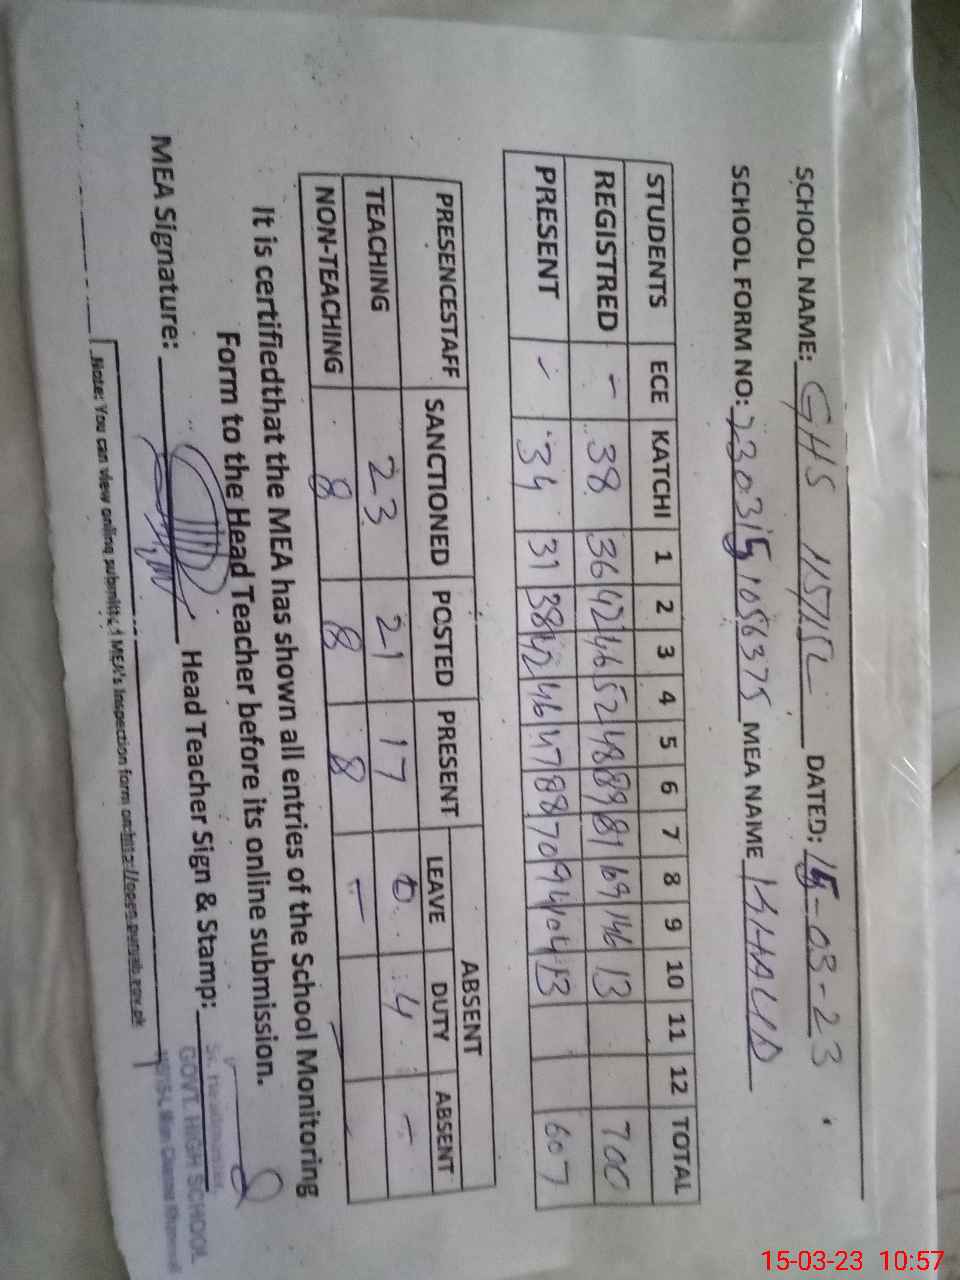 SCHOOL NAME: GHS 115/15L DATED: 15-03-23
SCHOOL FORM NO: 2303151056375 MEA NAME KHALID
STUDENTS ECE KATCHI 1 2 3 4 5 6 7 8 9 10 11 12 TOTAL
REGISTRED - 38 36 42 46 52 48 89 81 69 146 13 700
PRESENT - 34 31 38 42 46 47 88 70 94 104 13 607
ABSENT
PRESENCESTAFF SANCTIONED POSTED PRESENT LEAVE DUTY ABSENT
TEACHING 23 21 17 0 4 -
NON-TEACHING 8 8 8 -
It is certifiedthat the MEA has shown all entries of the School Monitoring
Form to the Head Teacher before its online submission.
MEA Signature: Head Teacher Sign & Stamp:
Sr. Headmaster
GOVT. HIGH SCHOOL
Note: You can view online submitted MEA's Inspection form on
15-03-23 10:57